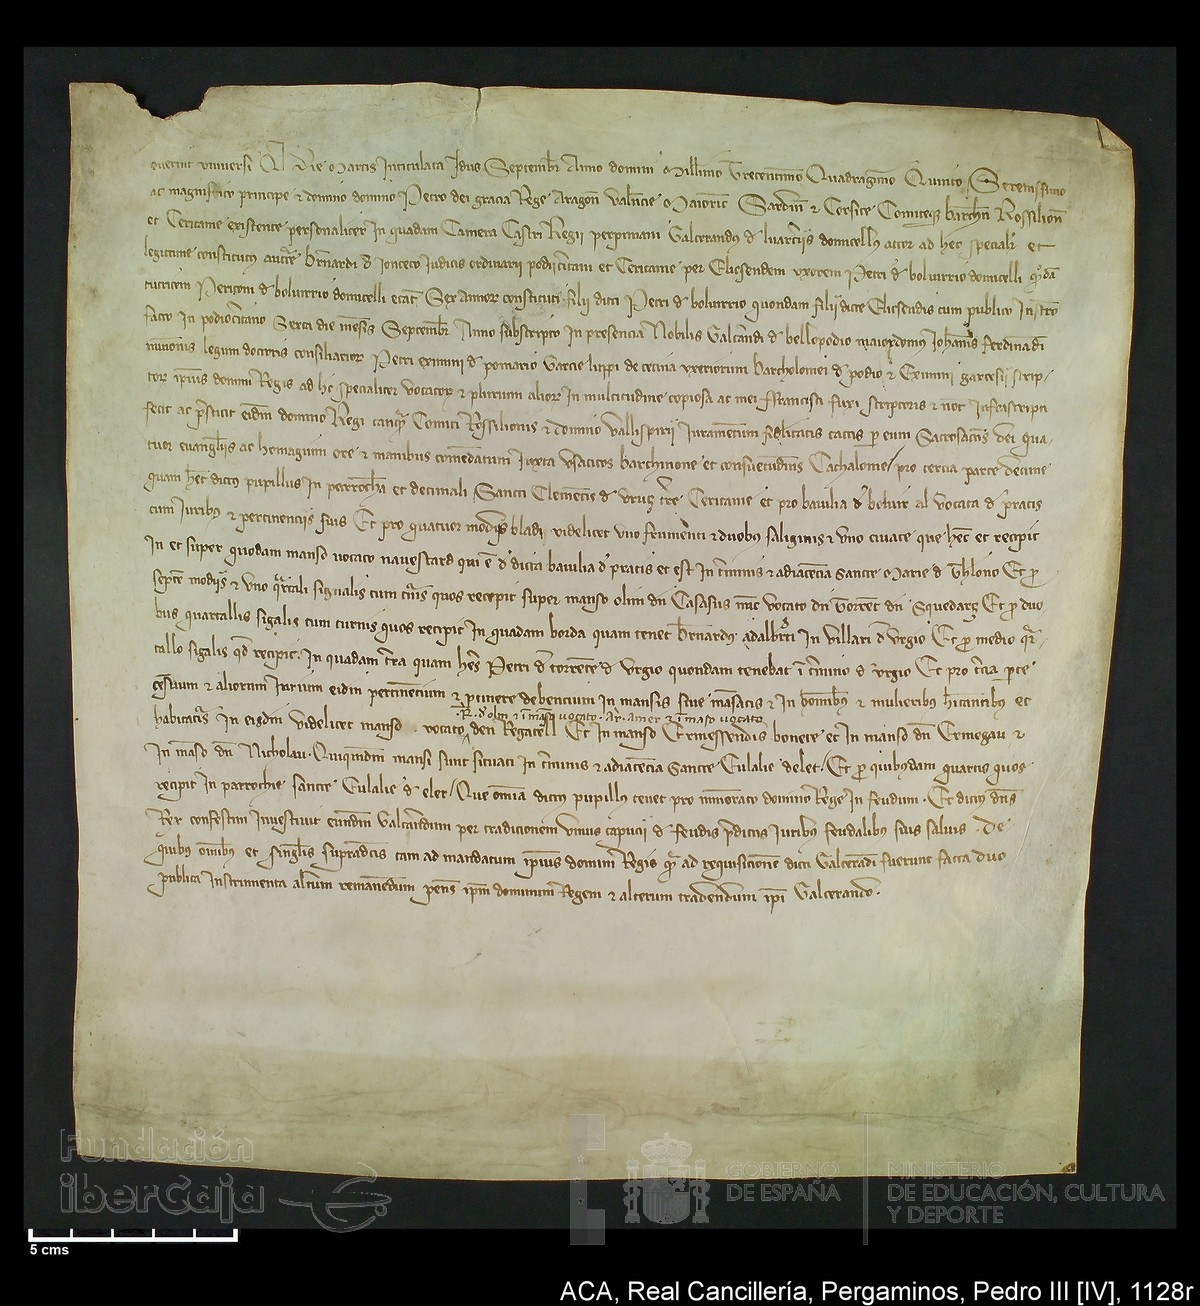 overint universi Q̄ Die Martis Intitulata Idus Septembr̄ Anno domini Millimo Trecentimo Quadragīmo Quinto Serenissimo
ac magnifico principe et domino domino Petro dei gracia Rege Aragon̄ Valn̄cie Maioric̄ Sardin̄ et Corsice Comiteq barchn̄ Rossilion̄
et Ceritanie existente personaliter In quadam Camera Castri Regii perpiniani Galcerandus d̄ domicellus actor ad hec specialr̄ et
legitime constitutus auctte br̄nardi d̄ Ionceto Iudicis ordinarii podiicritani et Ceritanie per Elicsendem uxorem Petri d̄ bolvirrio domicelli qōdā
tutricem Periconi d̄ bolvirrio domicelli etat̄ Sex Annor constituti filij dicti Petri d̄ bolvirrio quondam filii dicte Elicsendis cum publico Instr̄o
facto In podiocritano Sexta die mensis Septembr̄ Anno subscripto In presencia Nobilis Galcerandi d̄ bellopodio maiordomus Iohannis ferdinādi
munionis legum doctoris consiliarior Petri eximini d̄ pomario Garcie luppi de cetina uxeriorum bartholomei d̄ podio et Eximini garcesii scrip-
tor ipsius domini Regis ad hc̄ specialiter vocator et plurium alior In multitudine copiosa ac mei ffrancisci fuxi scriptoris et not̄ Infrascripti
fecit ac p̄stitit eidm̄ domino Regi tanq̄ Comiti Rossilionis et domino vallispirii Iuramentum fidelitatis tactis p eum Sacrosanctis dei qua-
tuor euangliis ac homagium ore et manibus comēdatum Iuxta usaticos barchinone et consuetudines Cathalonie pro tercia parte decime
quam hēt dictus pupillus In parrochia et decimali Sancti Clementis d̄ urug tr̄re Ceritanie et pro baiulia d̄ bolvir al vocata d̄ pratis
cum Iuribus et pertinenciis suis Et pro quatuor modiis bladi videlicet uno frumenti et duobus saliginis et uno civate que hēt et recipit
In et super quodam manso vocato navestard qui ē d̄ dicta baiulia d̄ pratis et est In tr̄minis et adiacencia Sancte Marie d̄ Thlono Et p
septe modiis et uno qrtali sigualis cum turnis quos recepit super manso olim dn̄ Casasus nūc vocato dn̄ Torrent dn̄ Squedarg Et p duo
bus quartallis sigalis cum turnis quos recipit In quadam borda quam tenet Br̄nardus adalbrti In villari d̄ urgio Et p medio qr-
tallo sigalis qd recipit In quadam tr̄ra quam hēs Petri d̄ torrente d̄ urgio quondam tenebat ī tr̄mino d̄ urgio Et pro tr̄cia p̄te
cesuum et aliorum Iurium eidm̄ pertinentium et p̄tinere debencium In mansis sive mansatis et In homibus et mulieribus hitantibus et
.P. d̄ olm et ī maso vocato . ar . amer et ī maso vocato
habitatis In eisdm̄ videlicet manso . vocato den Regatell Et In manso Ermessendis bonete et In manso dn̄ Ermegau et
In maso dn̄ Nicholau. Quiquidm̄ mansi sunt situati In tr̄minis et adiacencia Sancte Eulalie delet. Et p quibusdam quartis quos
recipit In parrochia sancte Eulalie d̄ elet Que omnia dictus pupillus tenet pro memorato domino Rege In feudum. Et dictus dn̄s
Rex confestim Investivit eundm̄ Galcerandum per tradicionem unius capucii d̄ feudis p̄dictis Iuribus feudalibus suis salvis . De
quibus omībus et singlis supradictis tam ad mandatum ipsius domini Regis q̄ ad requisicione dicti Galcerādi fuerunt facta duo
publica Instrumenta alterum remanēdum penes ipm̄ dominum Regem et alterum tradendum ip̄i Galcerando.
Fundación
iberCaja
GOBIERNO
DE ESPAÑA
MINISTERIO
DE EDUCACIÓN, CULTURA
Y DEPORTE
5 cms
ACA, Real Cancillería, Pergaminos, Pedro III [IV], 1128r